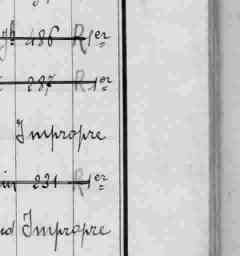 486 R 1er
287 R 1er
Impropre
231 R 1er
Impropre